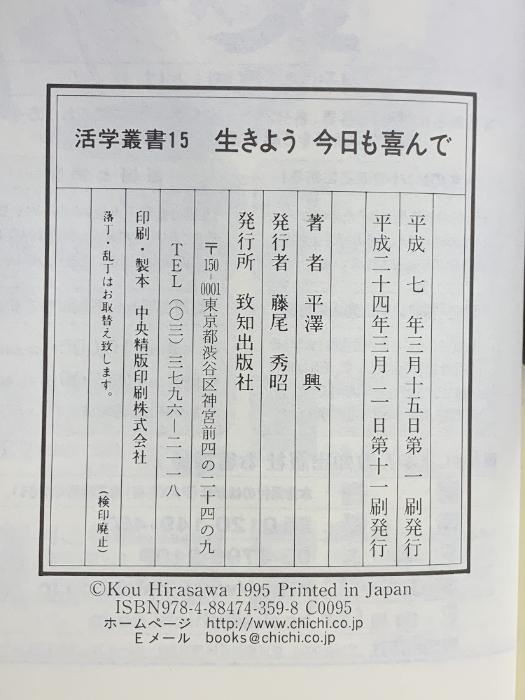 活学叢書15 生きよう 今日も喜んで
平成 七 年三月十五日第 一 刷発行
平成二十四年三月 二 日第十一刷発行
著 者 平澤 興
発行者 藤尾 秀昭
発行所 致知出版社
〒150-0001東京都渋谷区神宮前四の二十四の九
TEL(〇三)三七九六―二一一八
印刷・製本 中央精版印刷株式会社
落丁・乱丁はお取替え致します。 (検印廃止)
©Kou Hirasawa 1995 Printed in Japan
ISBN978-4-88474-359-8 C0095
ホームページ http://www.chichi.co.jp
Eメール books@chichi.co.jp